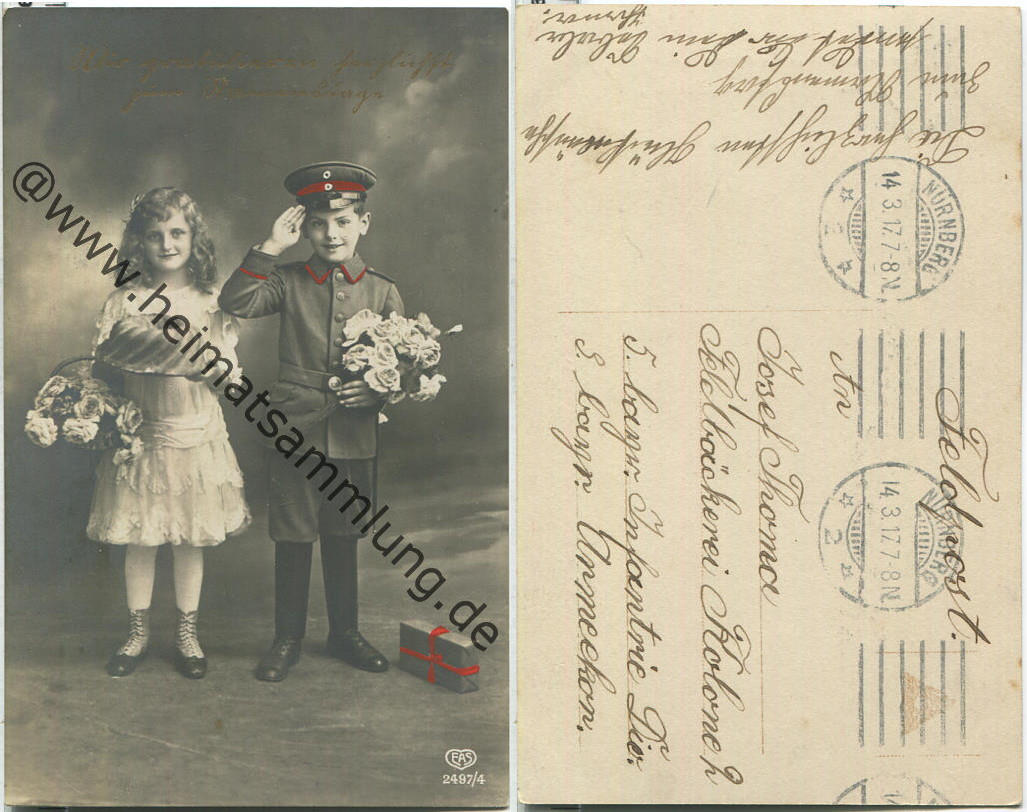 Wir gratulieren herzlichst
zum Namenstage
@www.heimatsammlung.de
EAS
2497/4
Die herzlichsten Glückwünsche
zum Namenstag
Thoma.
NÜRNBERG
14.3.17.7-8N.
2
Feldpost.
An
Josef Thoma
Feldbäckerei Kolone 2
5. bayr. Infantrie Div.
3. bayr. Armeekor.
NÜRNBERG
14.3.17.7-8N.
2